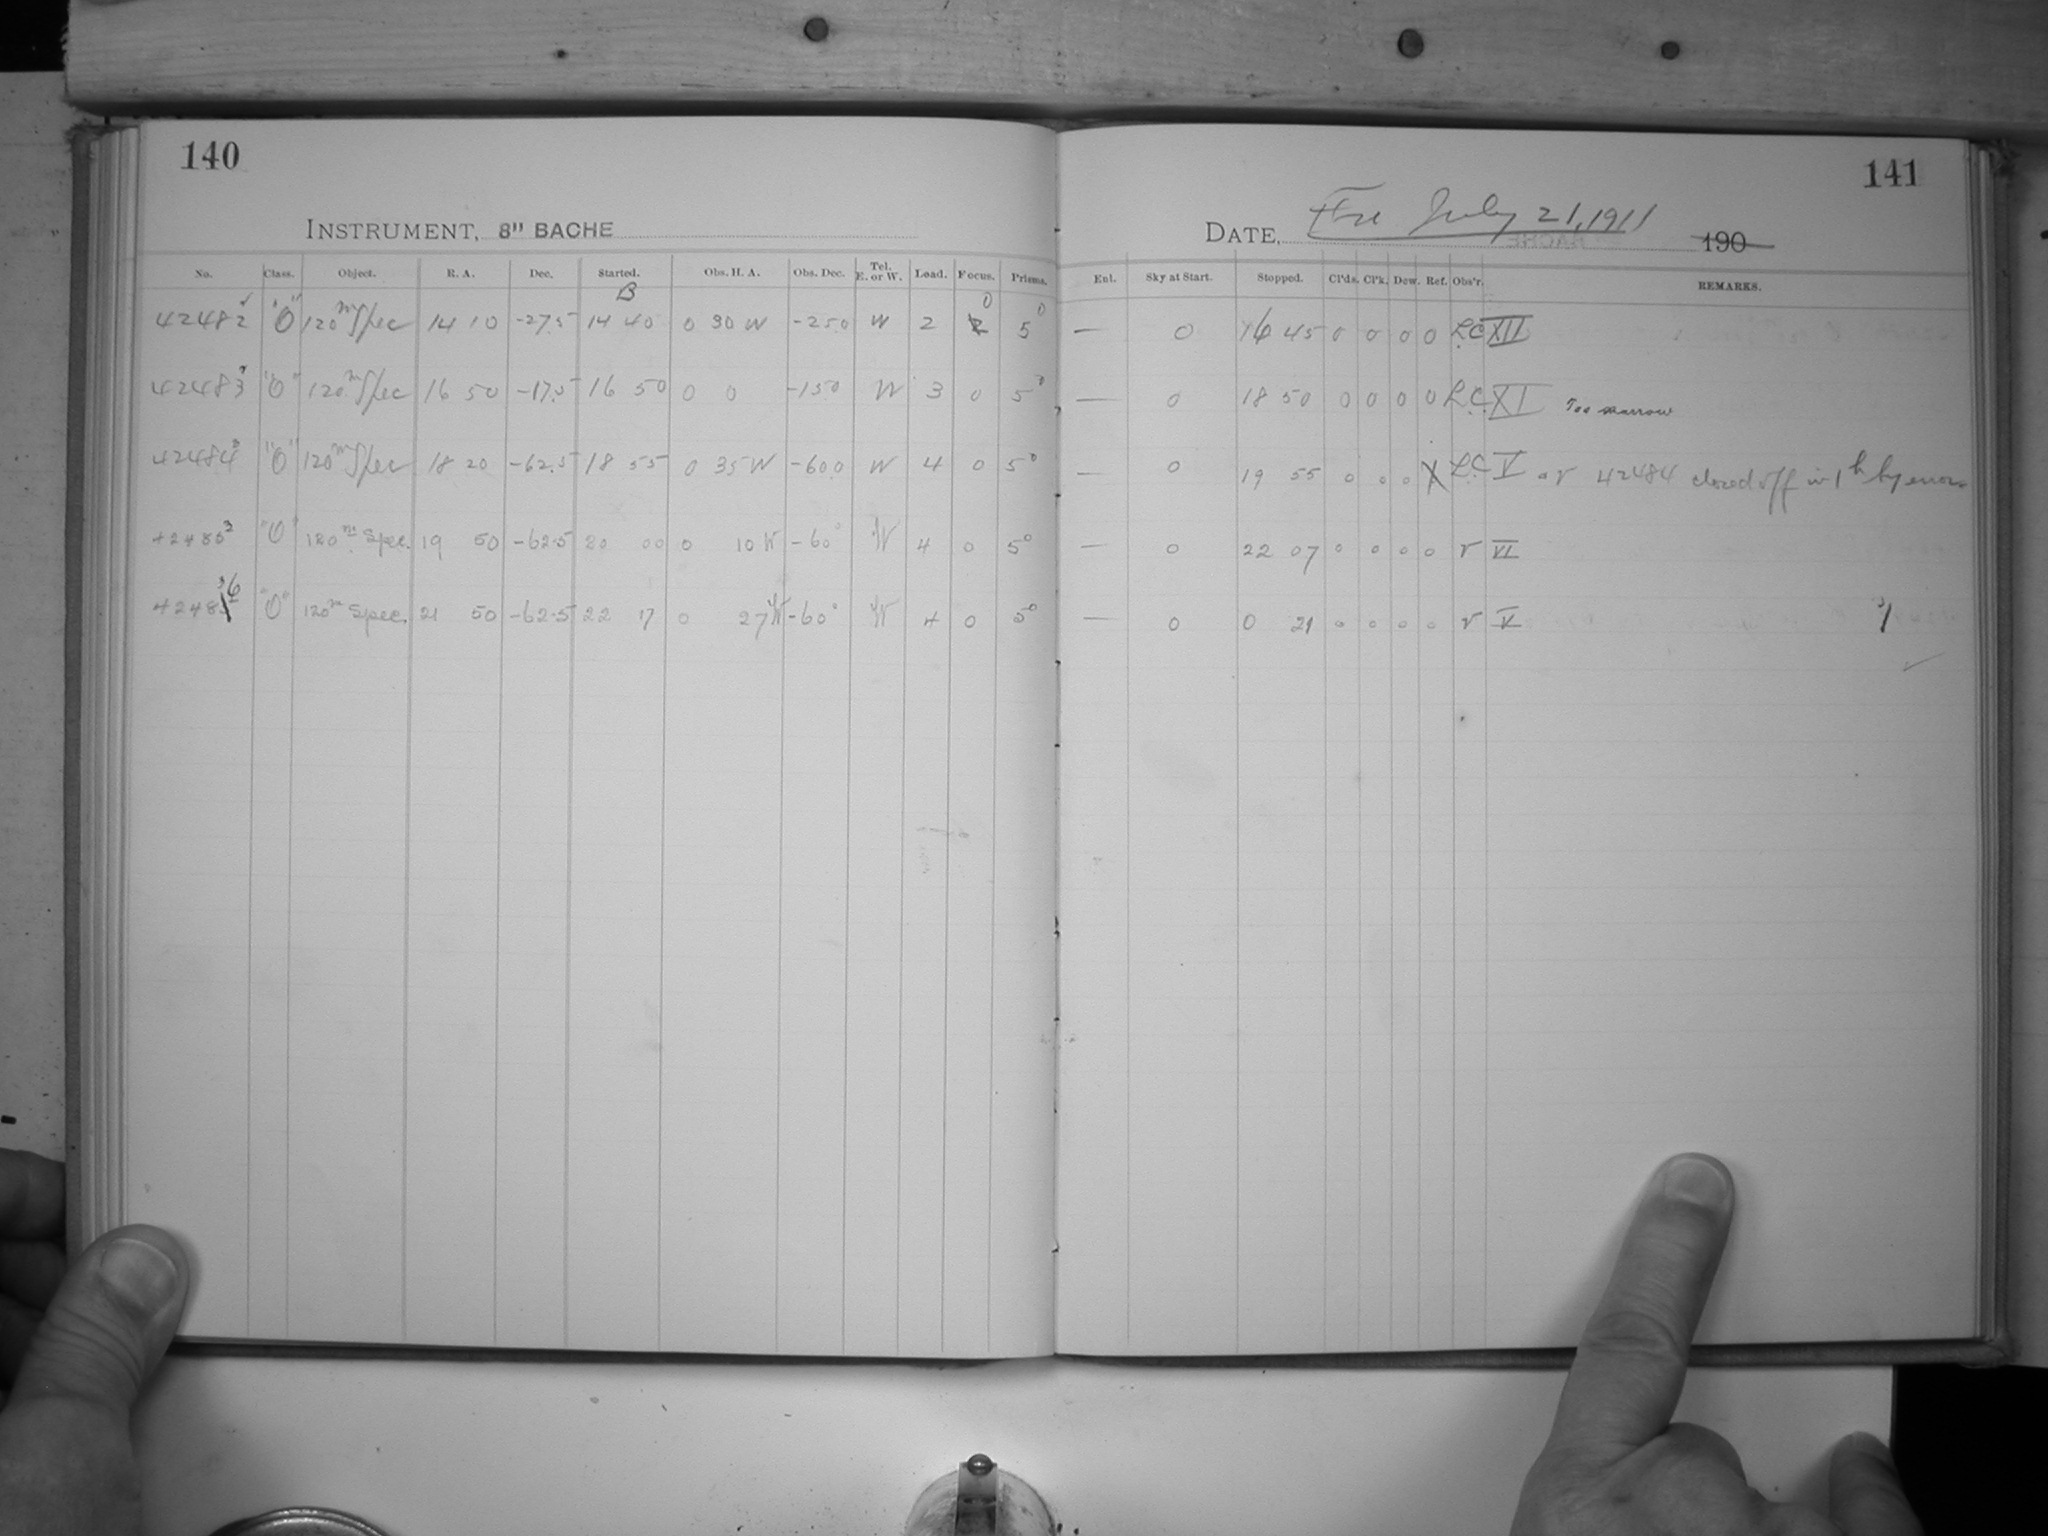 140
INSTRUMENT, 8" BACHE
No. Class. Object. R. A. Dec. Started. Obs. H. A. Obs. Dec. Tel. E. or W. Load. Focus. Prisms.
B 0
42482 "O" 120m Spec 14 10 -27.5 14 40 0 30 W -25.0 W 2 5°
42483 "O" 120m Spec 16 50 -17.5 16 50 0 0 -150 W 3 0 5°
42484 "O" 120m Spec 18 20 -62.5 18 55 0 35 W -60.0 W 4 0 5°
42485 "O" 120m Spec. 19 50 -62.5 20 00 0 10 W -60° W 4 0 5°
42486 "O" 120m Spec. 21 50 -62.5 22 17 0 27 W -60° W 4 0 5°
141
DATE, Fri July 21, 1911 190
Enl. Sky at Start. Stopped. Cl'ds. Cl'k. Dew. Ref. Obs'r. REMARKS.
— 0 16 45 0 0 0 0 L.C. XII
— 0 18 50 0 0 0 0 L.C. XI Too narrow
— 0 19 55 0 0 0 L.C. V 42484 closed off in 1h by error
— 0 22 07 0 0 0 0 r VI
— 0 0 21 0 0 0 0 r V